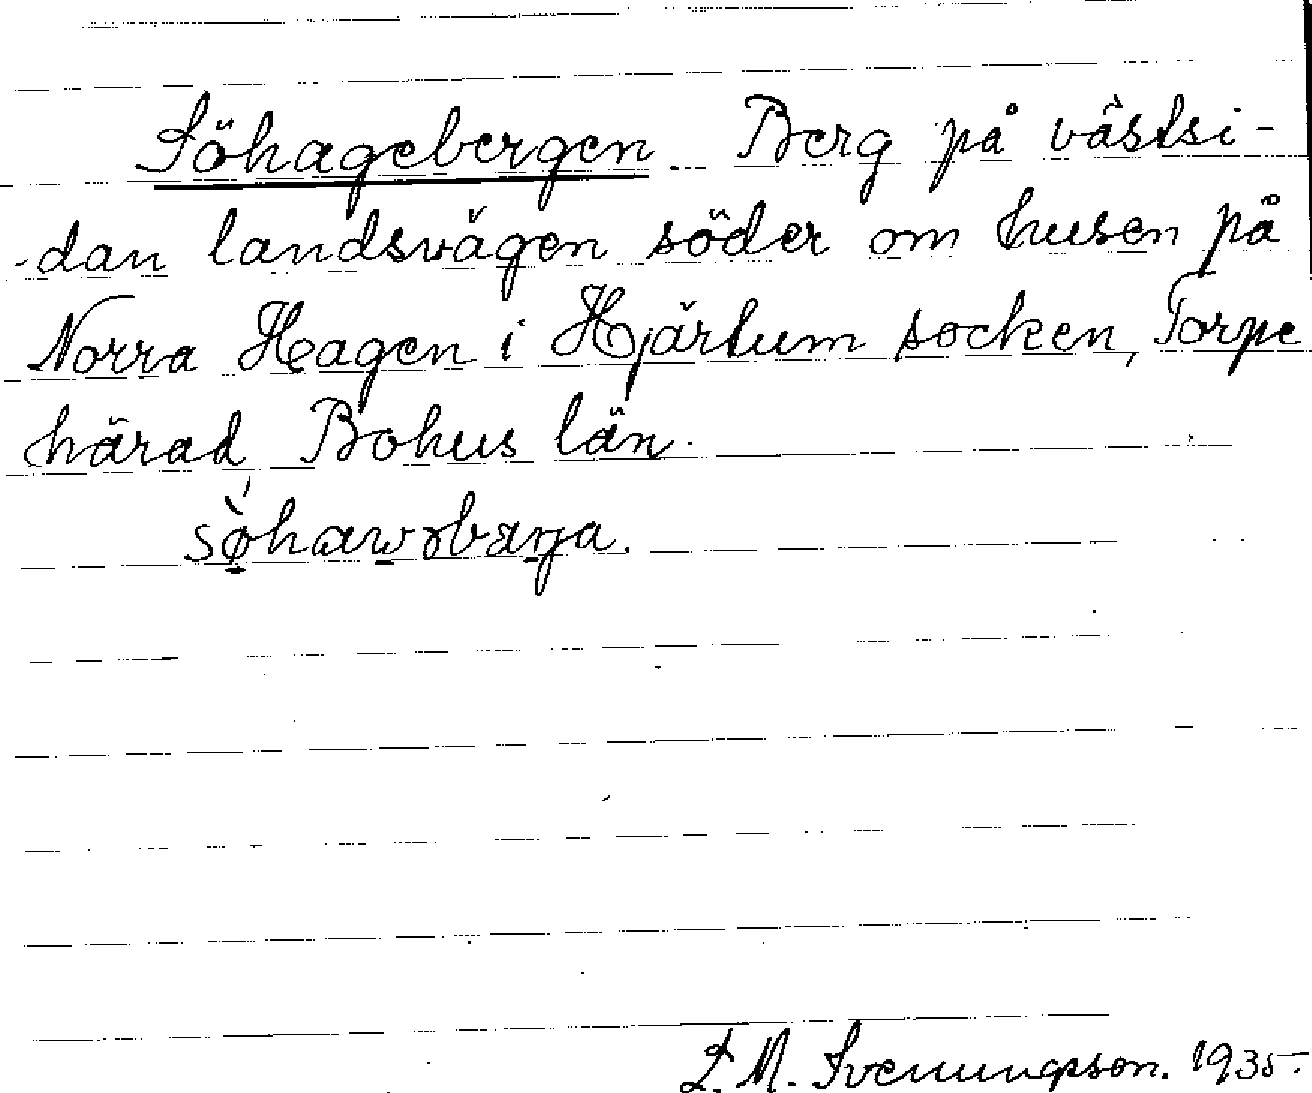 Söhagebergen Berg på västsi-
-dan landsvägen söder om husen på
Norra Hagen i Hjärtum socken, Torpe
härad Bohus län.
L. M. Svenungsson. 1935.